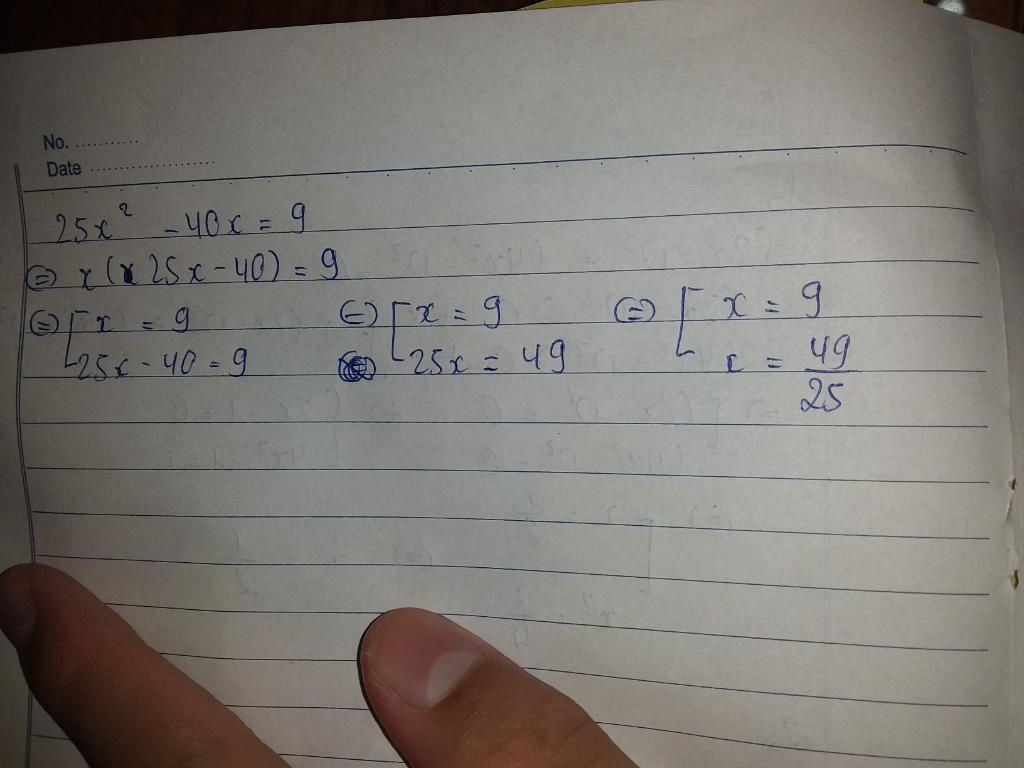 No. ...........
Date .....................
25x² - 40x = 9
⇔ x(25x - 40) = 9
⇔ [ x = 9 ⇔ [ x = 9 ⇔ [ x = 9
25x - 40 = 9 25x = 49 x = 49/25